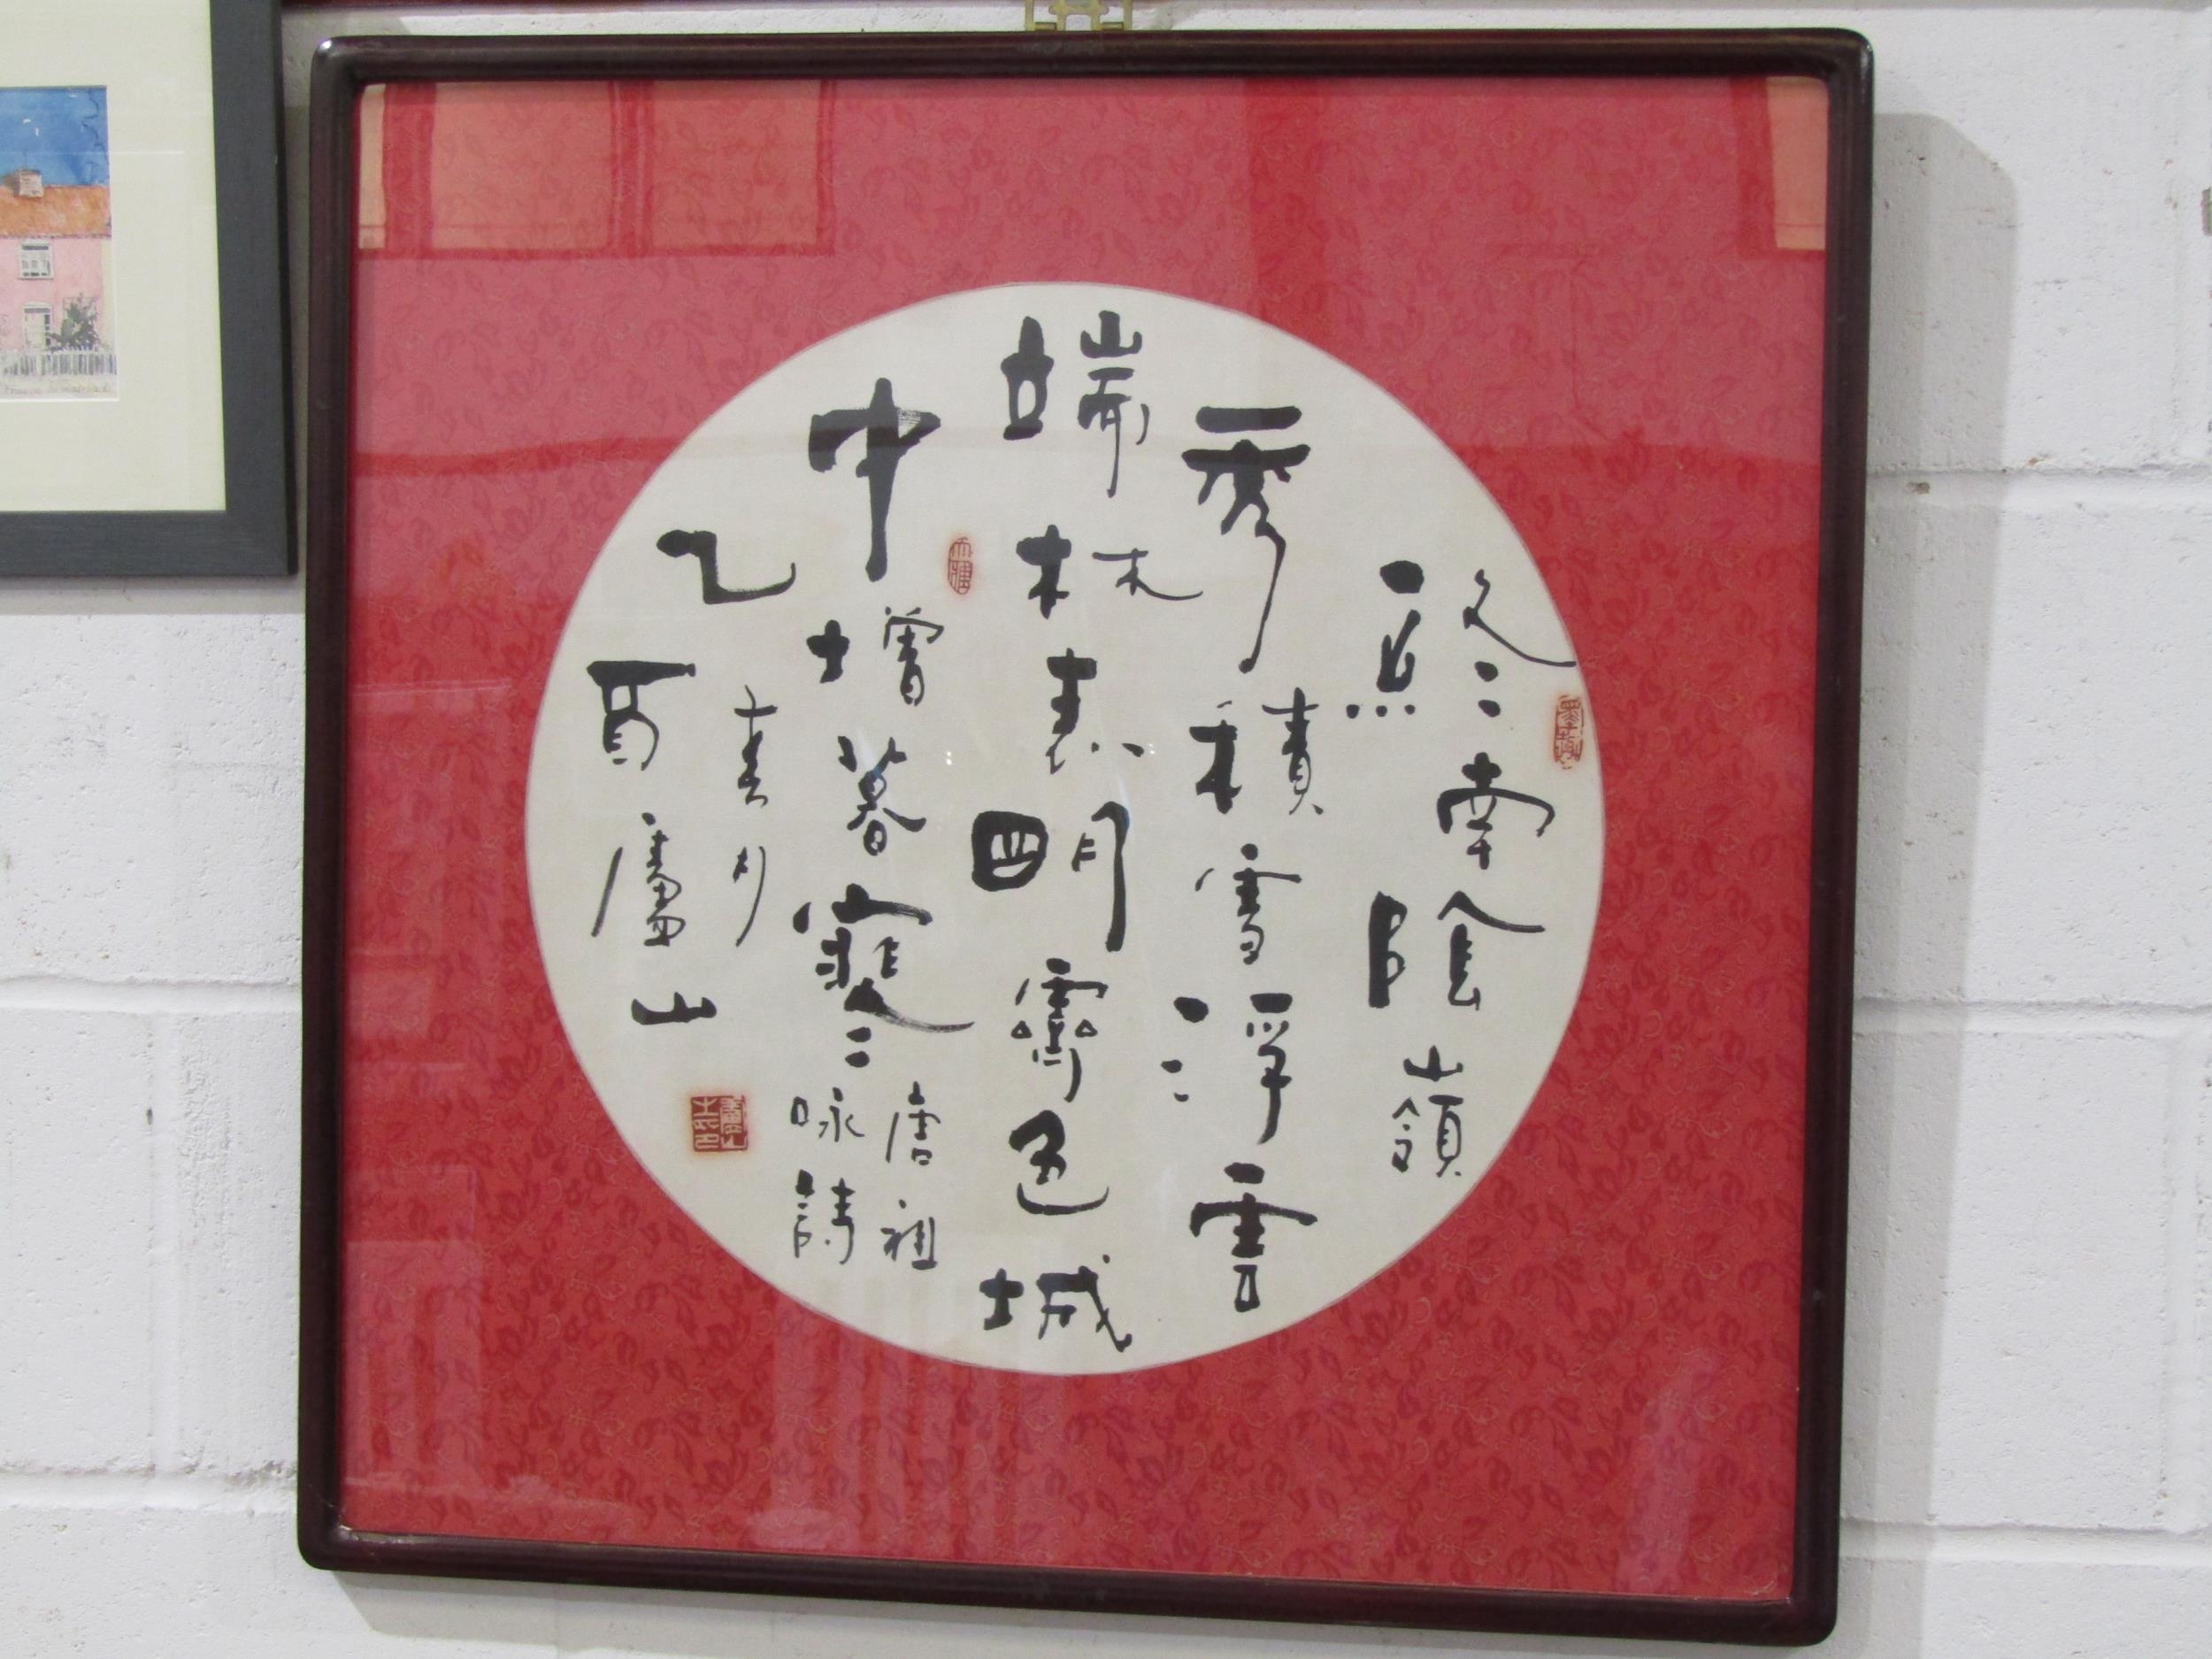 終南陰嶺
秀積雪浮雲
端林表明霽色城
中增暮寒
唐祖
咏詩
乙酉春月
廬山